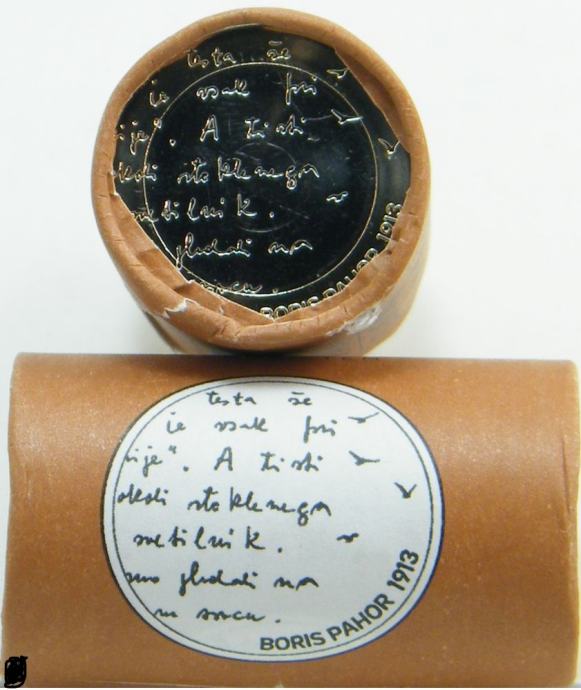 testa še
vsak pri
A tisti
okoli steklenega
svetilnik.
gledali na
BORIS PAHOR 1913
testa še
je vsak pri
ije". A tisti
okoli steklenega
svetilnik.
smo gledali na
soncu.
BORIS PAHOR 1913